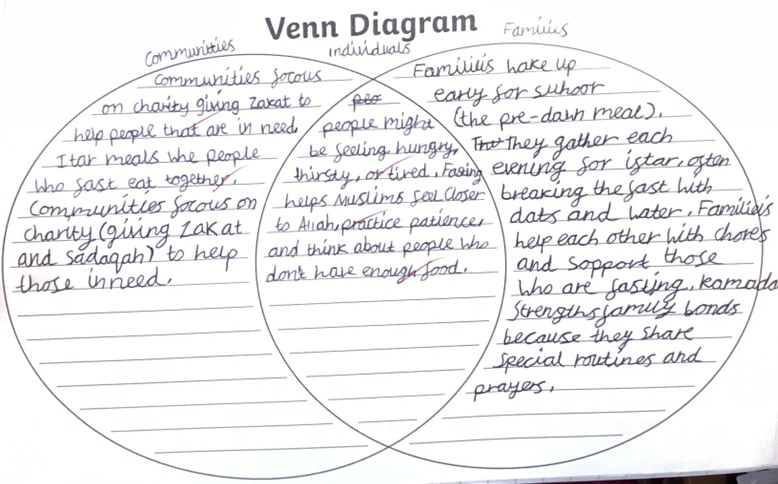 Venn Diagram
Communities
Individuals
Families
Communities focous
on charity giving Zakat to
help people that are in need,
Itar meals whe people
who fast eat together.
Communities focous on
charity (giving Zakat
and sadaqah) to help
those in need.
peo
people might
be feeling hungry,
thirsty, or tired. Fasing
helps Muslims feel Closer
to Allah, practice patience,
and think about people who
don't have enough food.
Familieis wake up
early for suhoor
(the pre-dawn meal).
They gather each
evening for istar, often
breaking the fast with
dats and water. Familieis
help each other with chores
and sopport those
who are fasiing. Ramada
Strengths family bonds
because they share
special routines and
prayers.